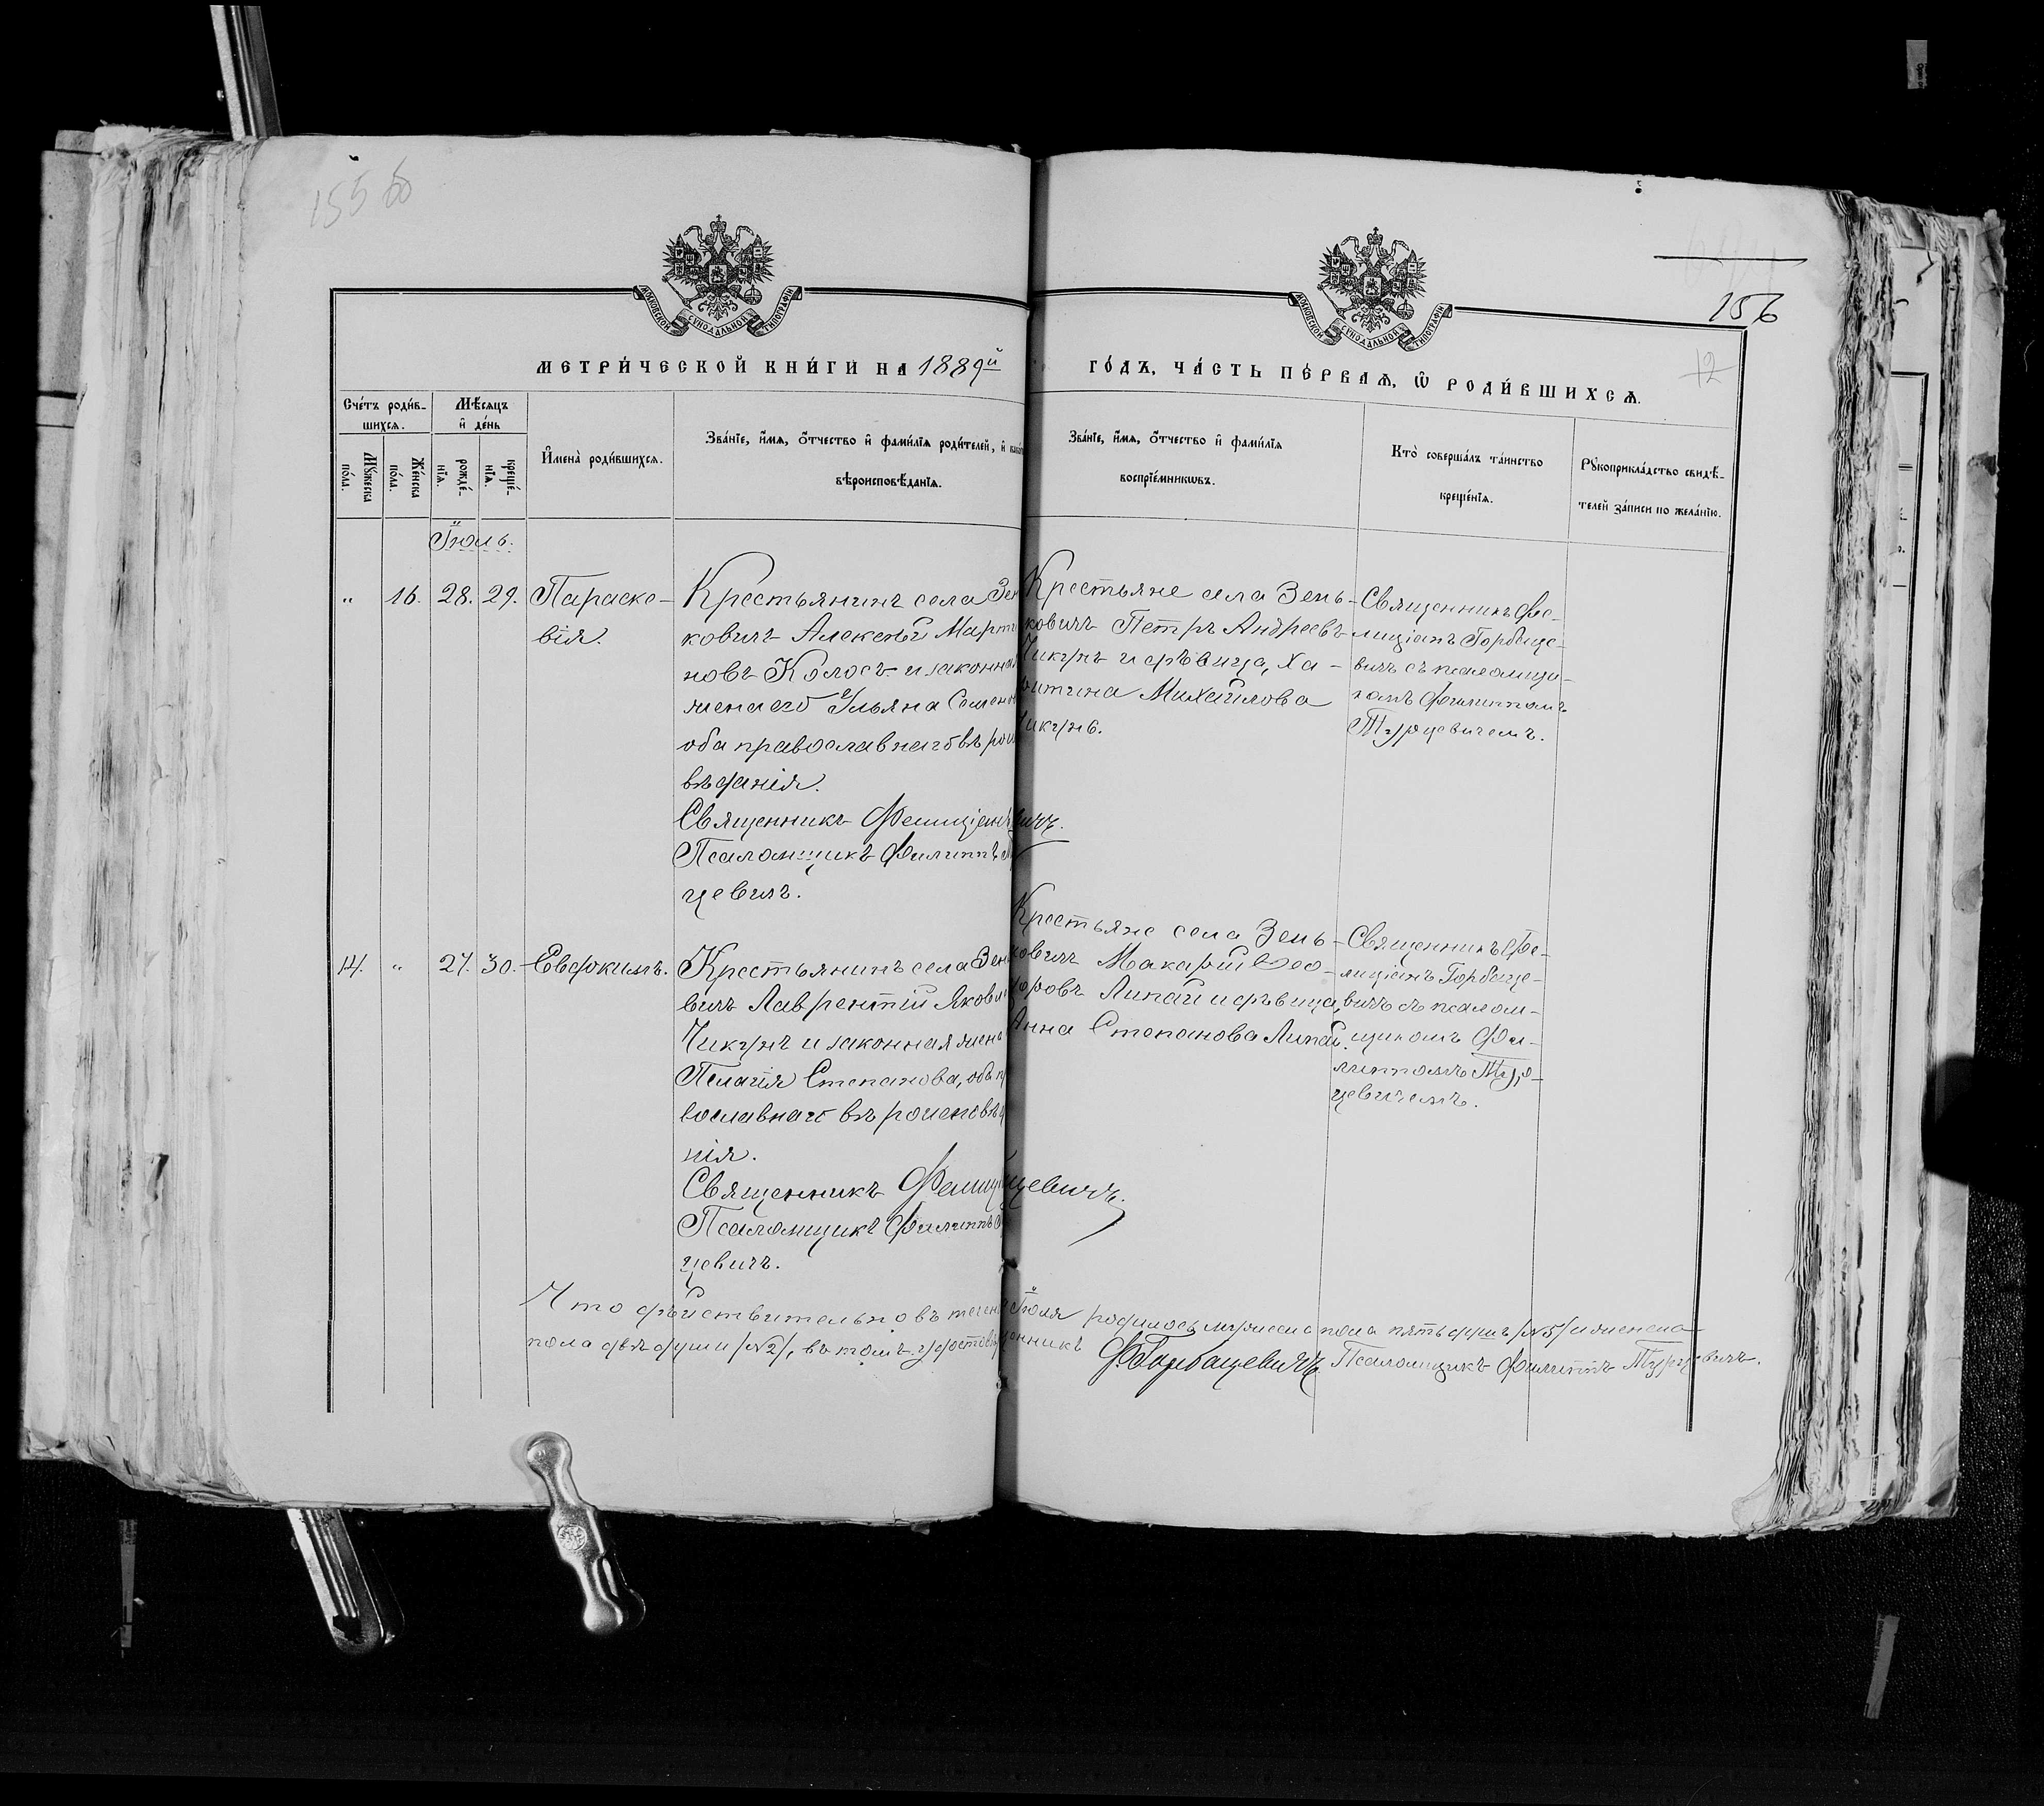 155 об
156
12
МОСКОВСКОЙ СѴНОДАЛЬНОЙ ТИПОГРАФІИ
МОСКОВСКОЙ СѴНОДАЛЬНОЙ ТИПОГРАФІИ
МЕТРИ́ЧЕСКОЙ КНИ́ГИ НА 1889й
ГО́ДЪ, ЧА́СТЬ ПЕ́РВАѦ, Ѽ РОДИ́ВШИХСѦ.
Сче́тъ роди́в-
шихсѧ.
Мꙋ́жеска
по́ла.
Же́нска
по́ла.
Мѣ́сѧцъ
и҆ де́нь
рожде́-
нїѧ.
креще́-
нїѧ.
И҆мена̀ роди́вшихсѧ.
Зва́нїе, и҆́мѧ, ѻ҆́тчество и҆ фами́лїѧ роди́телей, и҆
вѣроисповѣ́данїѧ.
Зва́нїе, и҆́мѧ, ѻ҆́тчество и҆ фами́лїѧ
воспрїе́мникѡвъ.
Кто̀ соверша́лъ та́инство
креще́нїѧ.
Рꙋкоприкла́дство свидѣ́-
телей за́писи по жела́нїю.
Іюль.
" 16. 28. 29. Параске-
вія.
Крестьянинъ села Зен
ковичъ Алексѣй Март
новъ Колосъ и законная
жена его Ульяна Семенов
оба православнаго вѣроис
вѣданія.
Священникъ Фелиціанъ
вичъ.
Псаломщикъ Филиппъ
цевичъ.
Крестьяне села Зень-
ковичъ Петръ Андреевъ
Чикунъ и дѣвица, Ха-
ритина Михайлова
Чикунъ.
Священникъ Фе-
лиціанъ Горбаце-
вичъ съ псаломщи-
комъ Филиппомъ
Турцевичемъ.
14. " 27. 30. Евдокимъ.
Крестьянинъ села Зен
вичъ Лаврентій Яковл
Чикунъ и законная жен
Пелагія Степанова, оба п
вославнаго вѣроисповѣд
нія.
Священникъ Фелиц
цевичъ.
Псаломщикъ Филиппъ
цевичъ.
Крестьяне села Зень-
ковичъ Макарій Ѳео-
доровъ Липай и дѣвица,
Анна Степанова Липай.
Священникъ Фе-
лиціанъ Горбаце-
вичъ съ псалом-
щикомъ Фи-
липпомъ Тур-
цевичемъ.
Что дѣйствительно въ течен Іюля родилось мужеска пола пять душъ /№5/ и женска
пола двѣ души /№2/, въ томъ удостов енникъ Ф. Горбацевичъ. Псаломщикъ Филиппъ Турцевичъ.